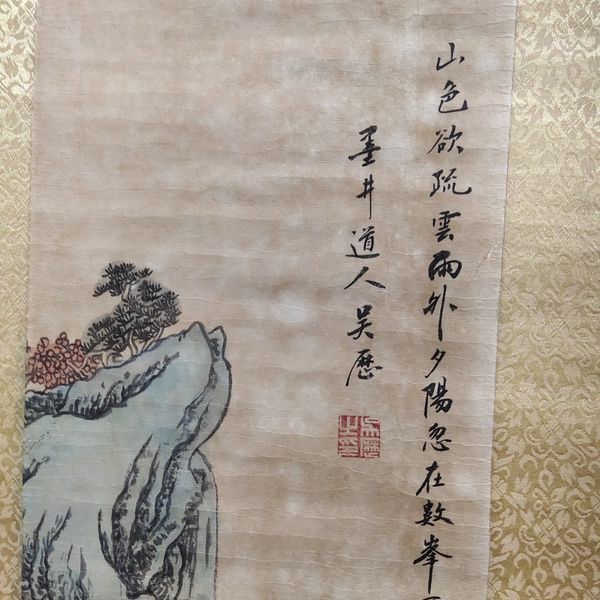 山色欲疏雲雨外夕陽忽在數峯
墨井道人吳歷